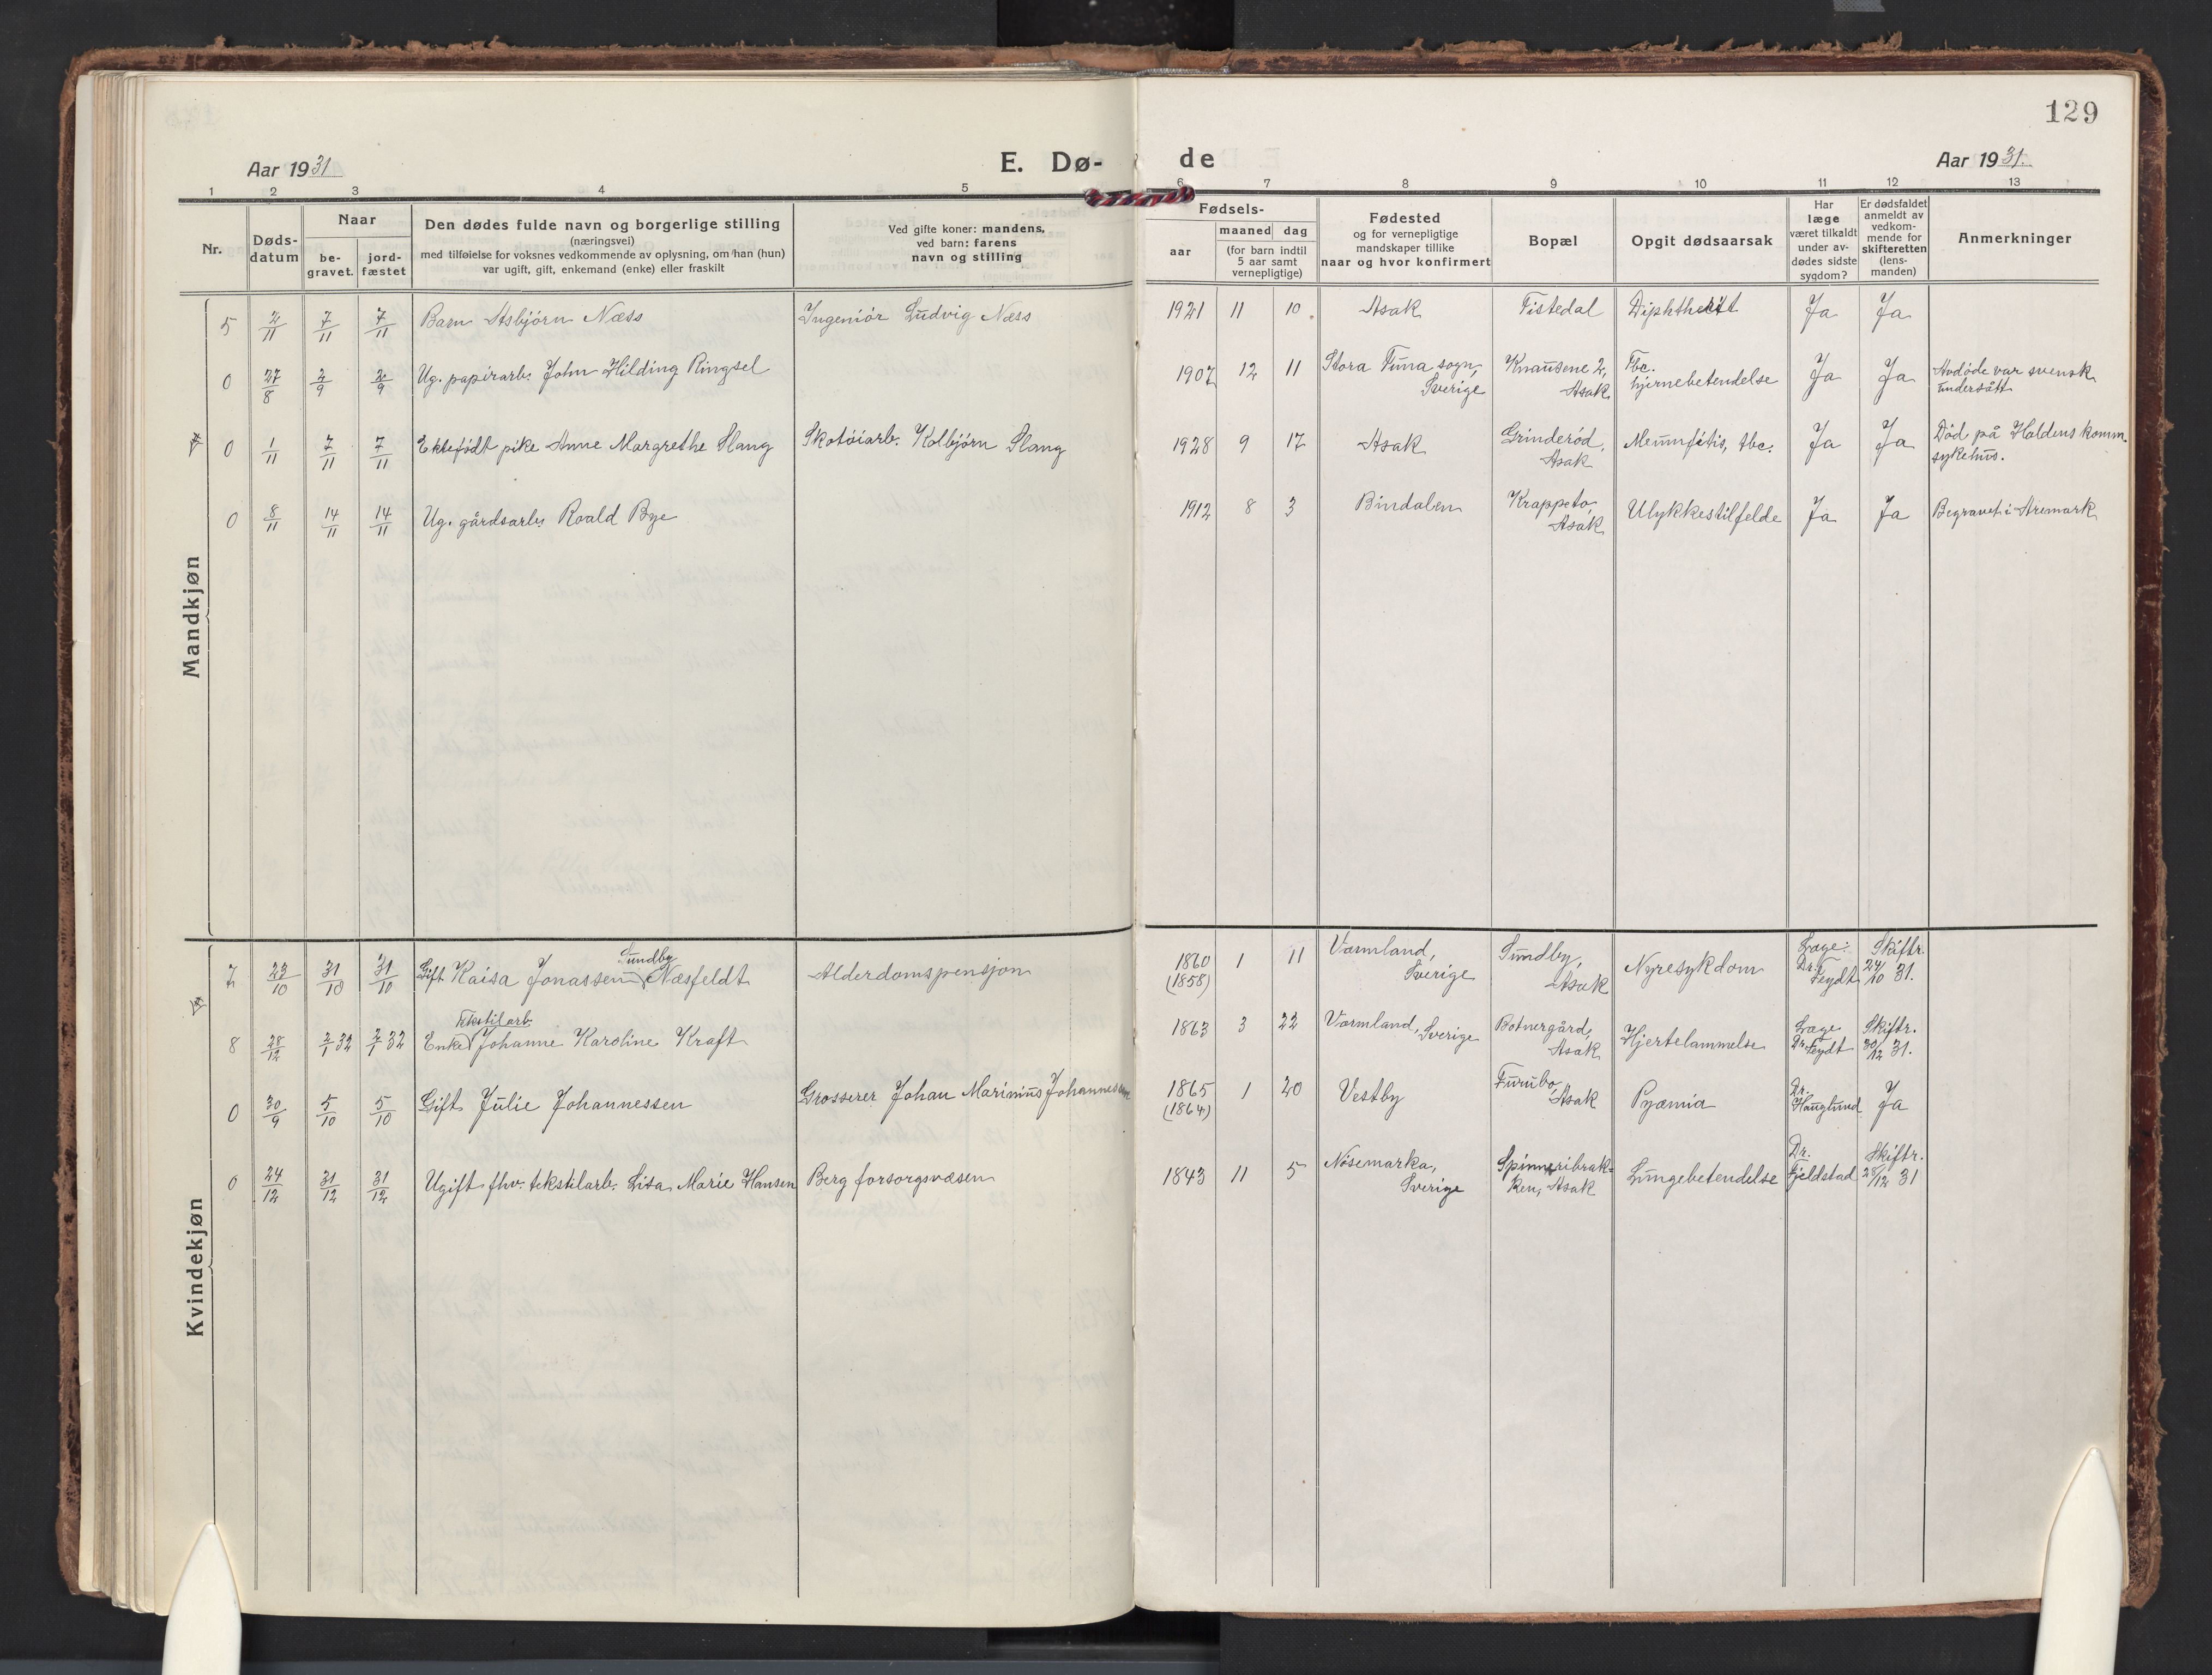 129
Aar 1931
E. Dø-
de
Aar 1931.
1 2 3 4 5 6 7 8 9 10 11 12 13
Nr.
Døds-
datum
Naar
be-
gravet.
jord-
fæstet
Den dødes fulde navn og borgerlige stilling
(næringsvei)
med tilføielse for voksnes vedkommende av oplysning, om han (hun)
var ugift, gift, enkemand (enke) eller fraskilt
Ved gifte koner: mandens,
ved barn: farens
navn og stilling
Fødsels-
aar
maaned dag
(for barn indtil
5 aar samt
vernepligtige)
Fødested
og for vernepligtige
mandskaper tillike
naar og hvor konfirmert
Bopæl
Opgit dødsaarsak
Har
læge
været tilkaldt
under av-
dødes sidste
sygdom?
Er dødsfaldet
anmeldt av
vedkom-
mende for
skifteretten
(lens-
manden)
Anmerkninger
Mandkjøn
5 2/11 7/11 7/11 Barn Asbjørn Næss Ingeniør Ludvig Næss 1921 11 10 Asak Tistedal Diphtherit Ja Ja
0 27/8 2/9 2/9 Ug. papirarb. John Hilding Ringsel 1907 12 11 Stora Tuna sogn, Sverige Knausene 2, Asak Tbc. hjernebetendelse Ja Ja Avdøde var svensk undersått
0 1/11 7/11 7/11 Ektefødt pike Anne Margrethe Slang Skotøiarb. Kolbjørn Slang 1928 9 17 Asak Grinderød, Asak tbc. Ja Ja Død på Haldens komm. sykehus.
0 8/11 14/11 14/11 Ug. gårdsarb. Roald Bye 1912 8 3 Bindalen Krappeto, Asak Ulykkestilfelde Ja Ja Begravet i Aremark
Kvindekjøn
7 23/10 31/10 31/10 Gift Kaisa Jonassen Sundby Næsfeldt Alderdomspensjon 1860 (1858) 1 11 Värmland, Sverige Sundby, Asak Nyresykdom Læge: Dr. Feydt Skiftr. 24/10 31.
8 28/12 2/1 32 2/1 32 Enke tekstilarb. Johanne Karoline Kraft 1863 3 22 Värmland, Sverige Botnergård, Asak Hjertelammelse Læge Dr. Feydt Skiftr. 30/12 31.
0 30/9 5/10 5/10 Gift Julie Johannessen Grosserer Johan Marinius Johannessen 1865 (1864) 1 20 Vestby Furubo, Asak Pyæmia Dr. Hauglund Ja
0 24/12 31/12 31/12 Ugift fhv. tekstilarb. Lisa Marie Hansen Berg forsorgsvæsen 1843 11 5 Nösemarka, Sverige Spinneribrak- ken, Asak Lungebetendelse Dr. Fjeldstad Skiftr. 28/12 31